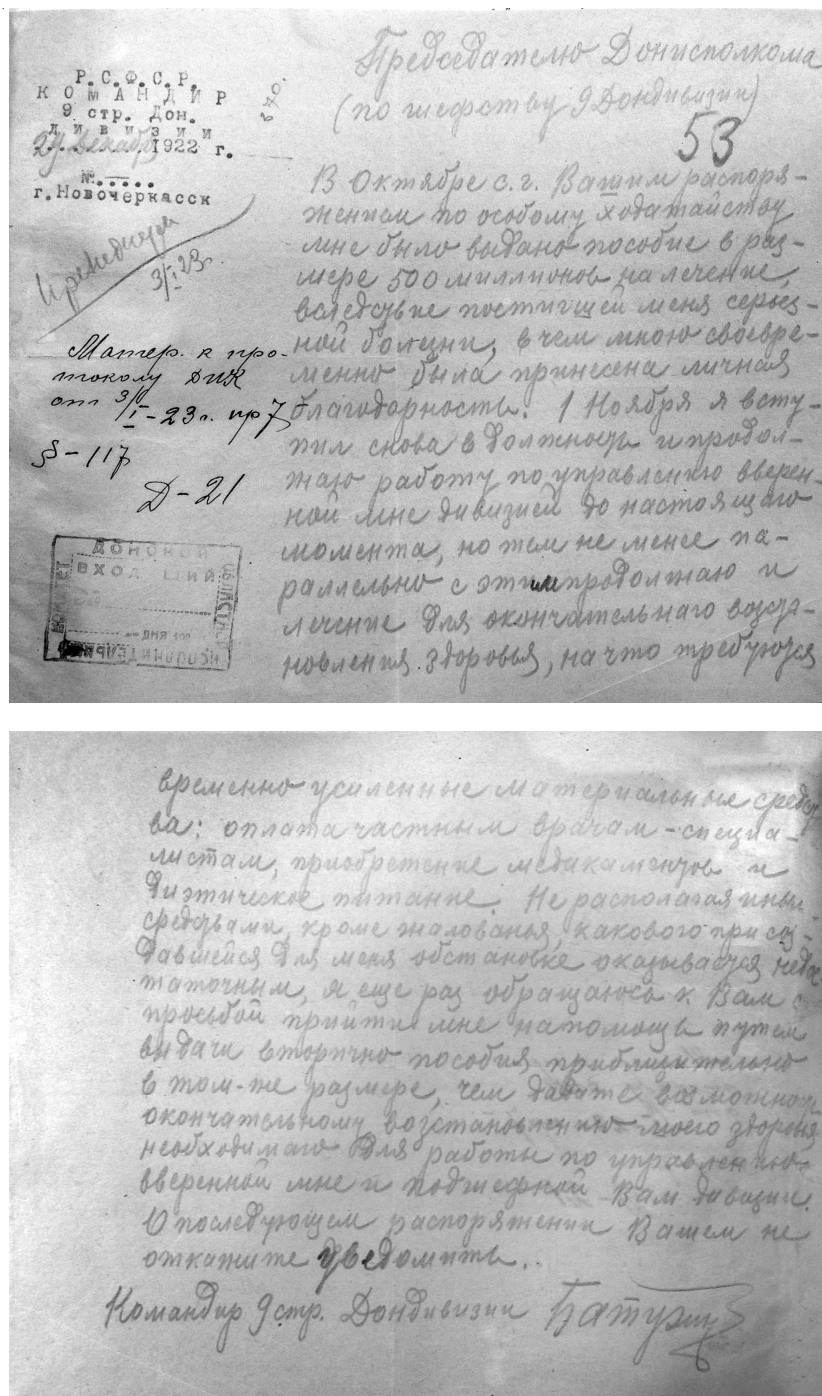 Р.С.Ф.С.Р.
КОМАНДИР
9 стр. Дон.
дивизии
29 Декабря 1922 г.
№.....
г.Новочеркасск
3/I 23г.
Матер. к про-
токолу ДИК
от 3/I-23г. пр 7
§-117
Д-21
ДОНСКОЙ
ОБЛАСТНОЙ
ИСПОЛНИТЕЛЬНЫЙ
КОМИТЕТ
ВХОДЯЩИЙ
ДНЯ 192
Председателю Донисполкома
(по шефству 9 Дондивизии)
53
В Октябре с.г. Вашим распоря-
жением по особому ходатайству
мне было выдано пособие в раз-
мере 500 миллионов на лечение,
вследствие постигшей меня серьез-
ной болезни, в чем мною своевре-
менно была принесена личная
благодарность. 1 Ноября я всту-
пил снова в должность и продол-
жаю работу по управлению вверен-
ной мне дивизией до настоящаго
момента, но тем не менее па-
раллельно с этим продолжаю и
лечение для окончательнаго возста-
новления здоровья, на что требуются
временно усиленные материальные средст
ва: оплата частным врачам-специа-
листам, приобретение медикаментов и
диэтическое питание. Не располагая иными
средствами, кроме жалованья, какового при соз-
давшейся для меня обстановке оказывается недос
таточным, я еще раз обращаюсь к Вам с
просьбой прийти мне на помощь путем
выдачи вторично пособия приблизительно
в том-же размере, чем дадите возможность
окончательному возстановлению моего здоровья
необходимаго для работы по управлению
вверенной мне и подшефной Вам дивизии.
О последующем распоряжении Вашем не
откажите уведомить.
Командир 9 стр. Дондивизии Батурин